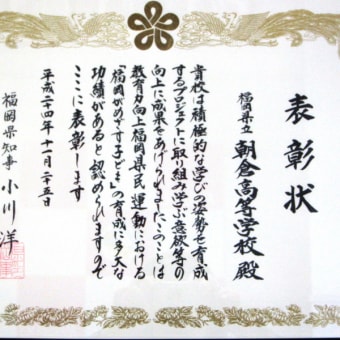 表彰状
福岡県立 朝倉高等学校 殿
貴校は積極的な学びの姿勢を育成
するプロジェクトに取り組み学ぶ意欲等の
向上に成果をあげられましたこのことは
教育力向上福岡県民運動における
「福岡がめざす子ども」の育成に多大な
功績があると認められますので
ここに表彰します
平成二十四年十一月二十五日
福岡県知事 小川洋